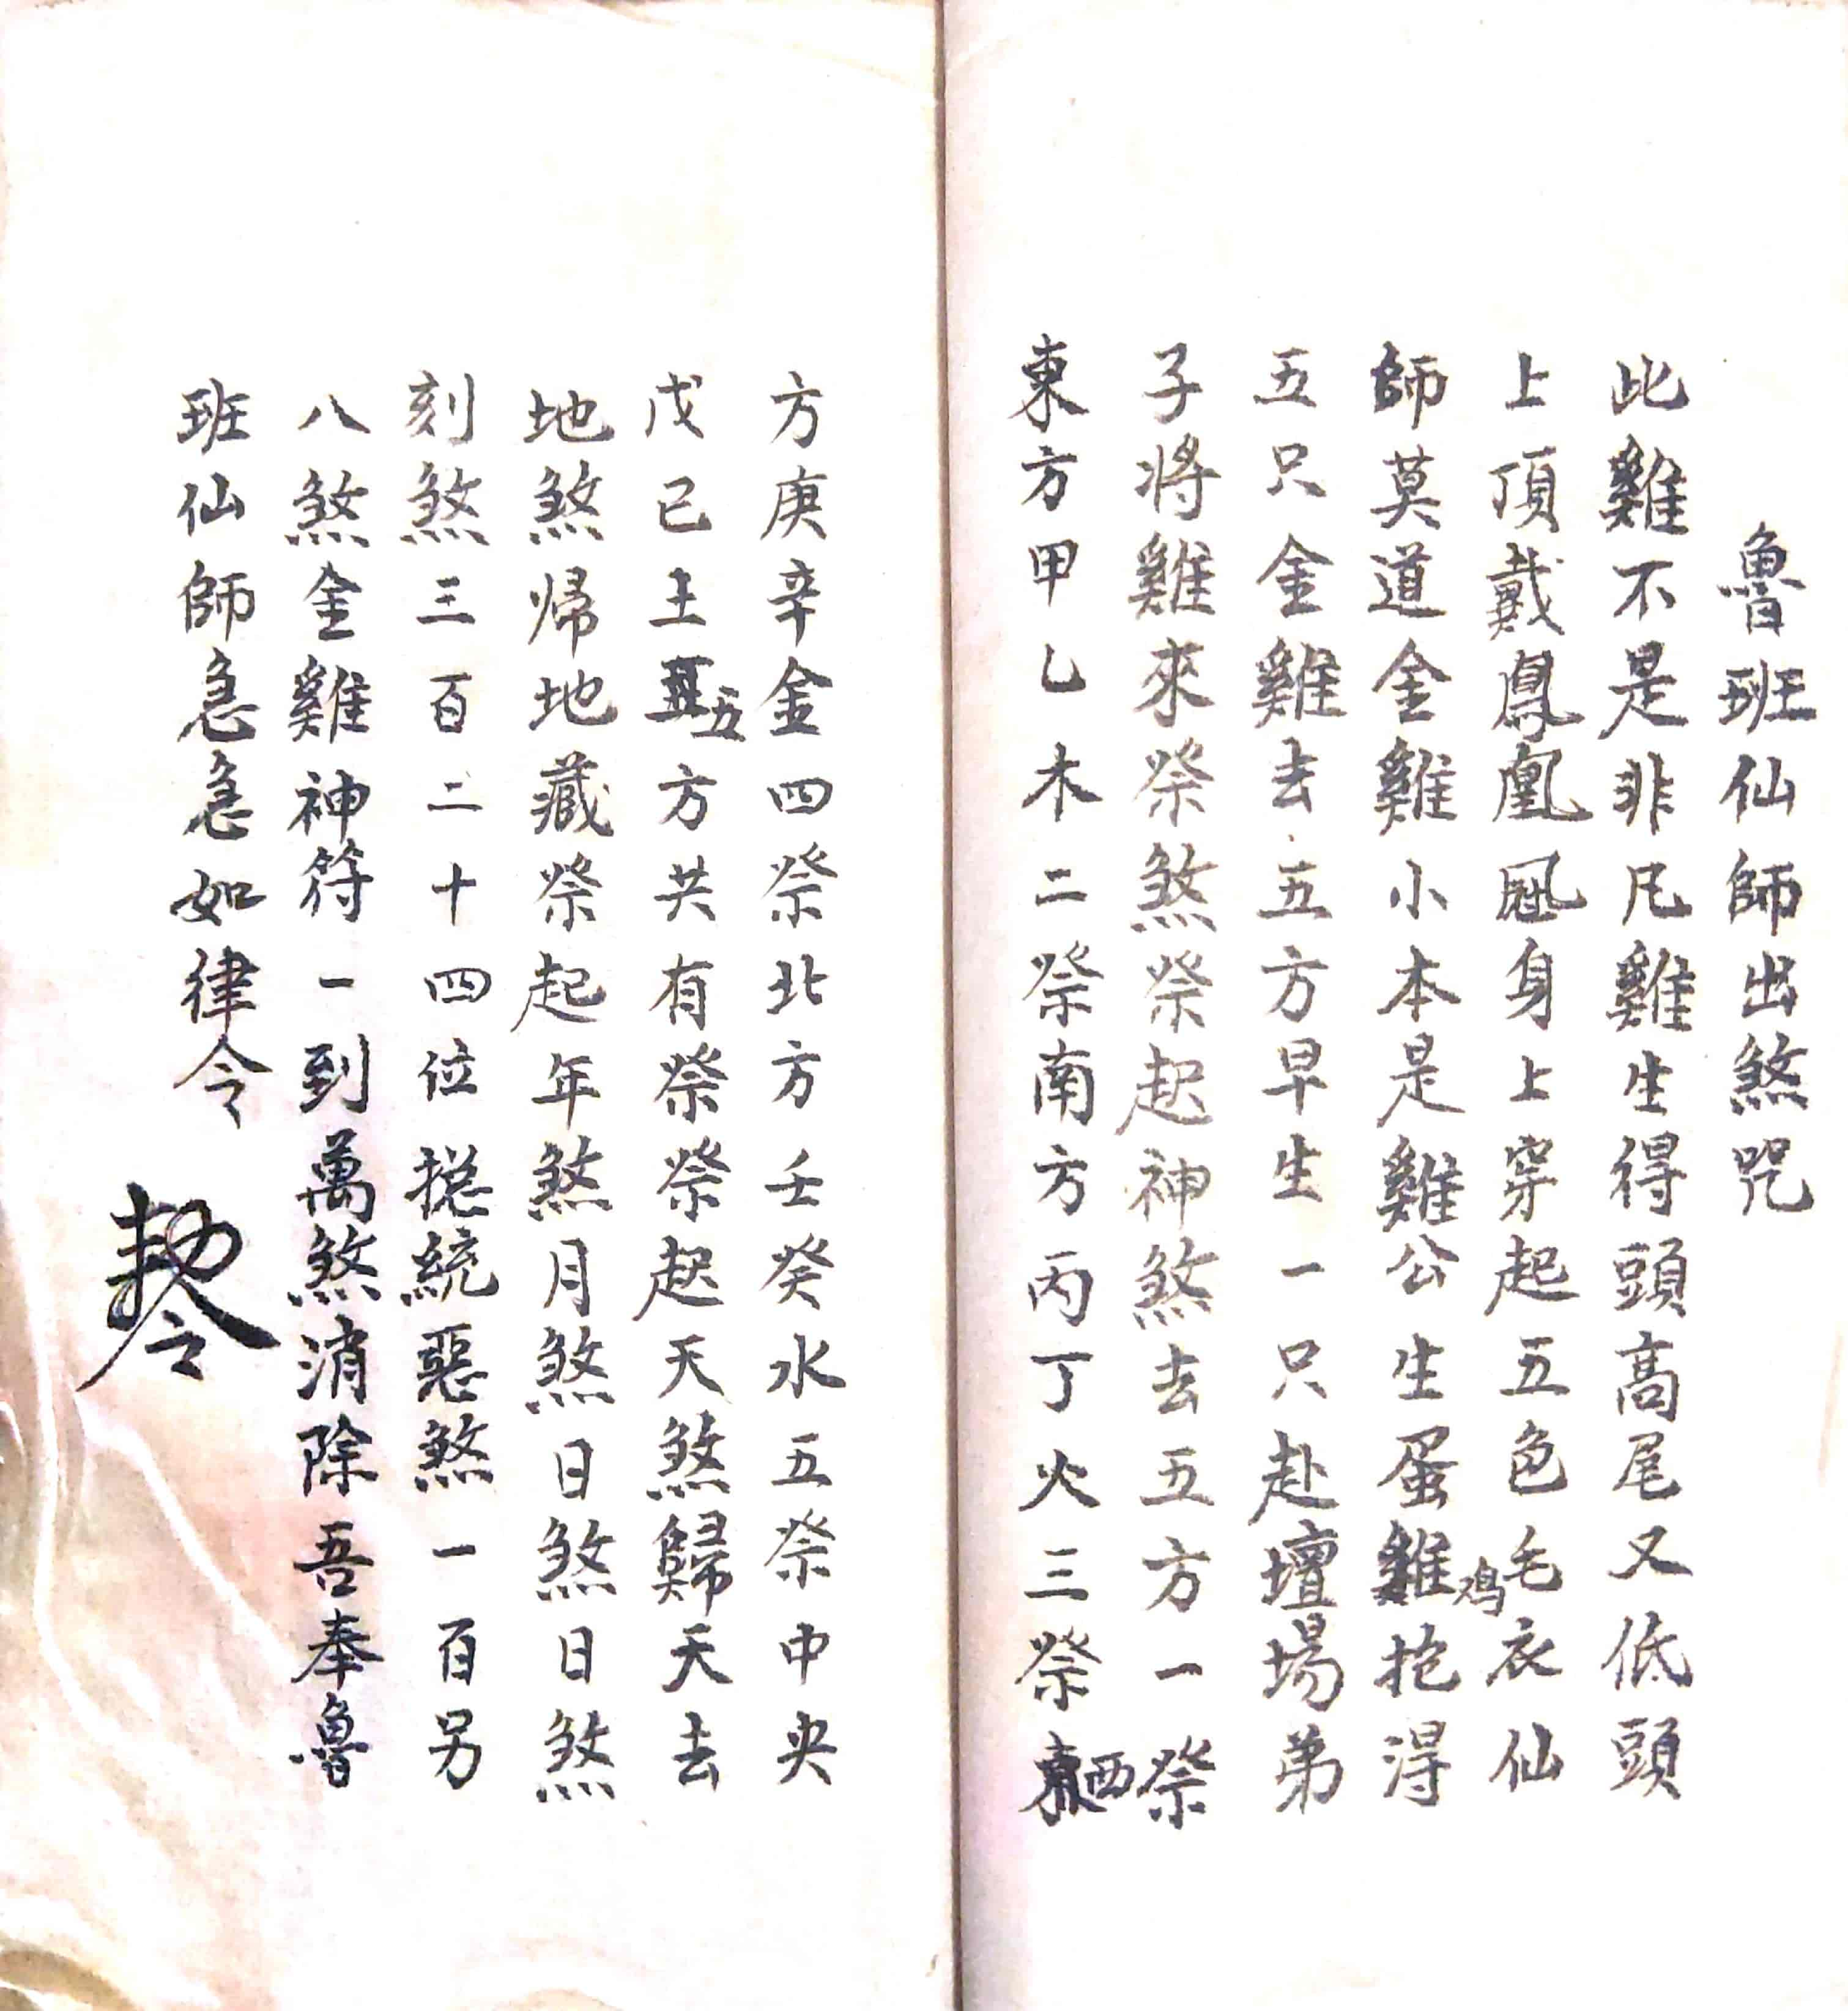 魯班仙師出煞咒
此雞不是非凡雞生得頭高尾又低頭
上頂戴鳳凰冠身上穿起五色毛衣仙
師莫道金雞小本是雞公生蛋雞鸡抱得
五只金雞去五方早生一只赴壇場弟
子將雞來祭煞祭起神煞去五方一祭
東方甲乙木二祭南方丙丁火三祭西
方庚辛金四祭北方壬癸水五祭中央
戊已土五方共有祭祭起天煞歸天去
地煞帰地藏祭起年煞月煞日煞日煞
刻煞三百二十四位摠統惡煞一百另
八煞金雞神符一到萬煞消除吾奉魯
班仙師急急如律令
敕令